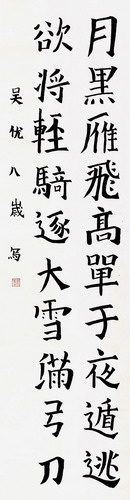 月黑雁飛髙單于夜遁逃
欲将輕騎逐大雪滿弓刀
吴忧八歲寫